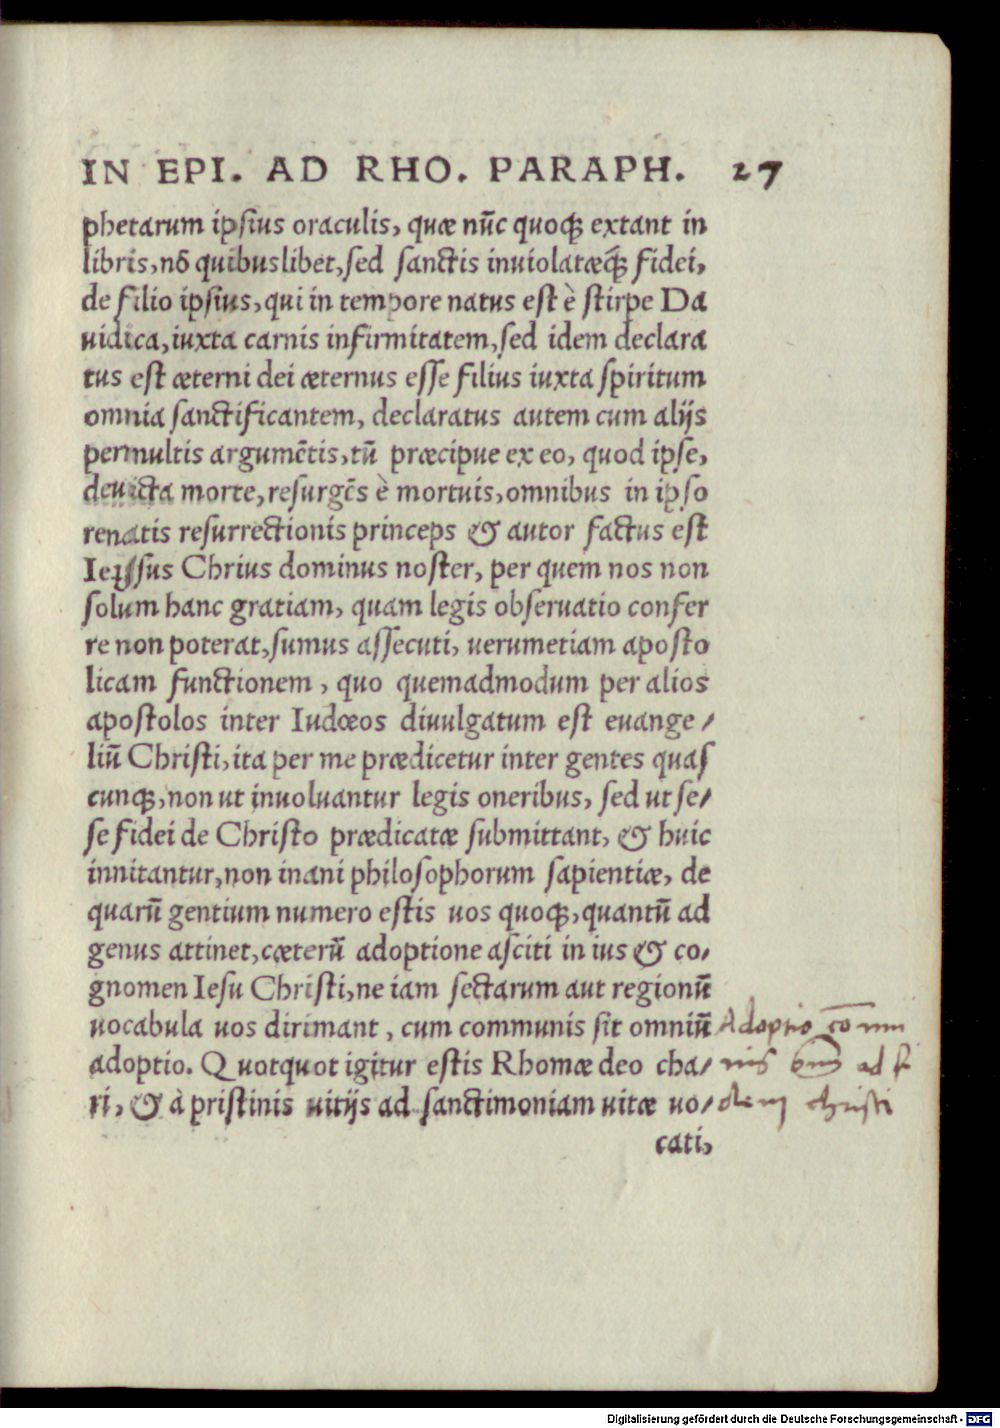 IN EPI. AD RHO. PARAPH. 27
phetarum ipsius oraculis, quæ nūc quoqꝫ extant in
libris, nō quibuslibet, sed sanctis inuiolatæq̃ꝫ fidei,
de filio ipsius, qui in tempore natus est è stirpe Da
uidica, iuxta carnis infirmitatem, sed idem declara
tus est æterni dei æternus esse filius iuxta spiritum
omnia sanctificantem, declaratus autem cum alijs
permultis argumētis, tū præcipue ex eo, quod ipse,
deuicta morte, resurgēs è mortuis, omnibus in ipso
renatis resurrectionis princeps & autor factus est
sus Chrius dominus noster, per quem nos non
solum hanc gratiam, quam legis obseruatio confer
re non poterat, sumus assecuti, uerumetiam aposto
licam functionem, quo quemadmodum per alios
apostolos inter Iudæos diuulgatum est euange/
liū Christi, ita per me prædicetur inter gentes quas
cunqꝫ, non ut inuoluantur legis oneribus, sed ut se/
se fidei de Christo prædicatæ submittant, & huic
innitantur, non inani philosophorum sapientiæ, de
quarū gentium numero estis uos quoqꝫ, quantū ad
genus attinet, cæterū adoptione asciti in ius & co/
gnomen Iesu Christi, ne iam sectarum aut regionū
uocabula uos dirimant, cum communis sit omniū
adoptio. Quotquot igitur estis Rhomæ deo cha/
ri, & à pristinis uitijs ad sanctimoniam uitæ uo/
cati,
Adoptio cōmu
nis ad fi
dem christi